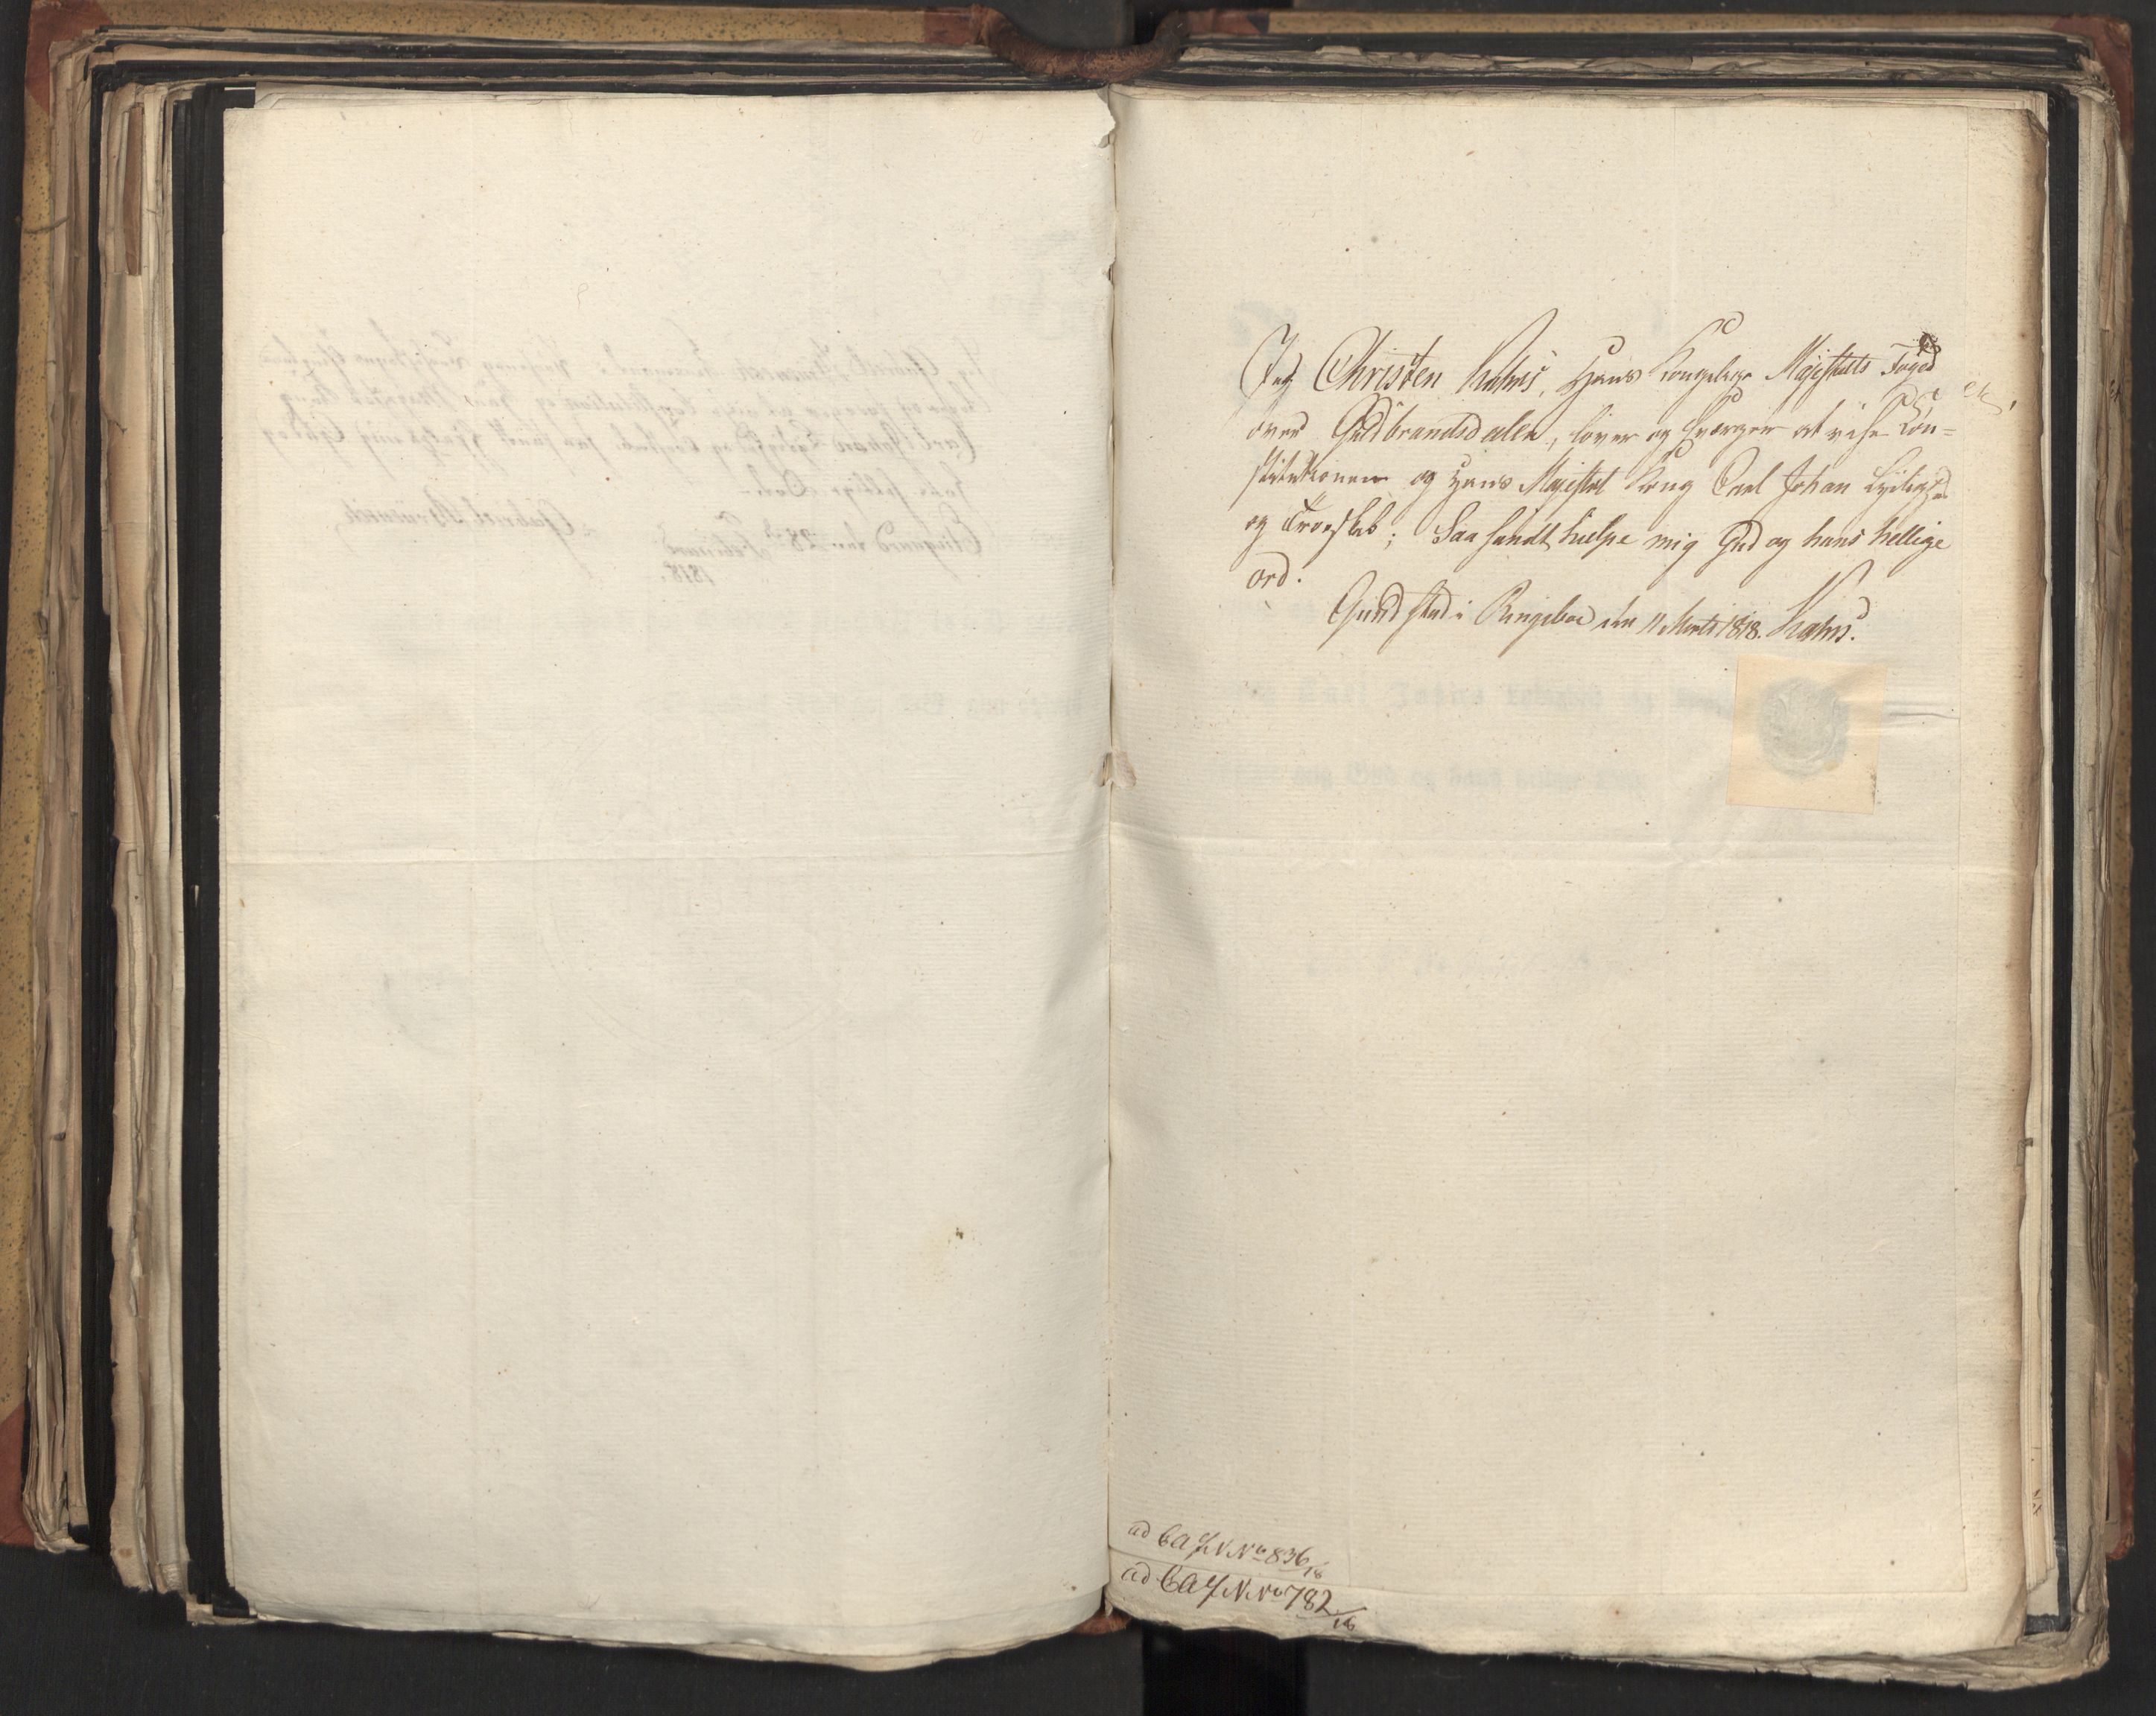 Jeg Christen Hahns, Hans Kongelige Majestæts Foged
over Guldbrandsdalen, lover og sværger at vise Con-
stitutionen og Hans Majestæt Kong Carl Johan Lydighed
og Troeskab; Saa sandt hielpe mig Gud og hans hellige
ord.
i Ringeboe den 11 Marts 1818. Hahns.
ad No 836/18
ad No 782/18